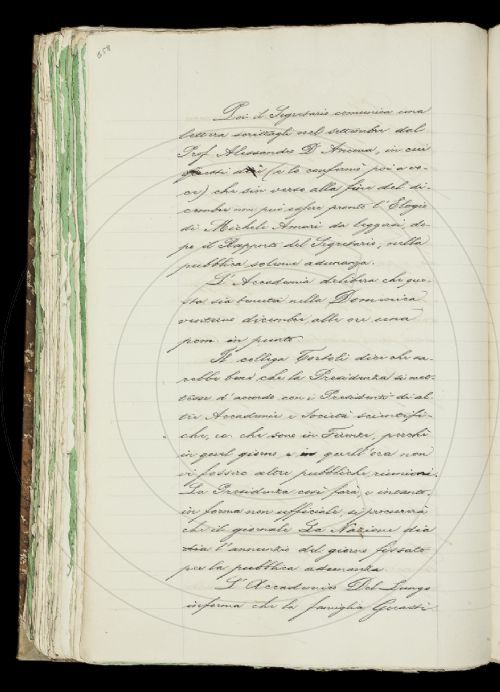 658
Poi il Segretario comunica una
lettera scrittagli nel settembre dal
Prof. Alessandro D'Ancona, in cui
(e lo confermò poi a vo-
ce) che sin verso alla fine del di-
cembre non può essere pronto l'Elogio
di Michele Amari da leggersi, do-
po il Rapporto del Segretario, nella
pubblica solenne adunanza.
L'Accademia delibera che que-
sta sia tenuta nella Domenica
ventuno dicembre alle ore una
pom. in punto.
Il collega Tortoli dice che sa-
rebbe bene che la Presidenza si met-
tesse d'accordo con i Presidenti di al-
tre Accademie e Società scientifi-
che, ec. che sono in Firenze, perchè
in quel giorno e in quell'ora non
vi fossero altre pubbliche riunioni.
La Presidenza così farà, e intanto,
in forma non ufficiale, si procurerà
che il giornale La Nazione dia
l'annunzio del giorno fissato
per la pubblica adunanza.
L'Accademico Del Lungo
informa che la famiglia Guasti